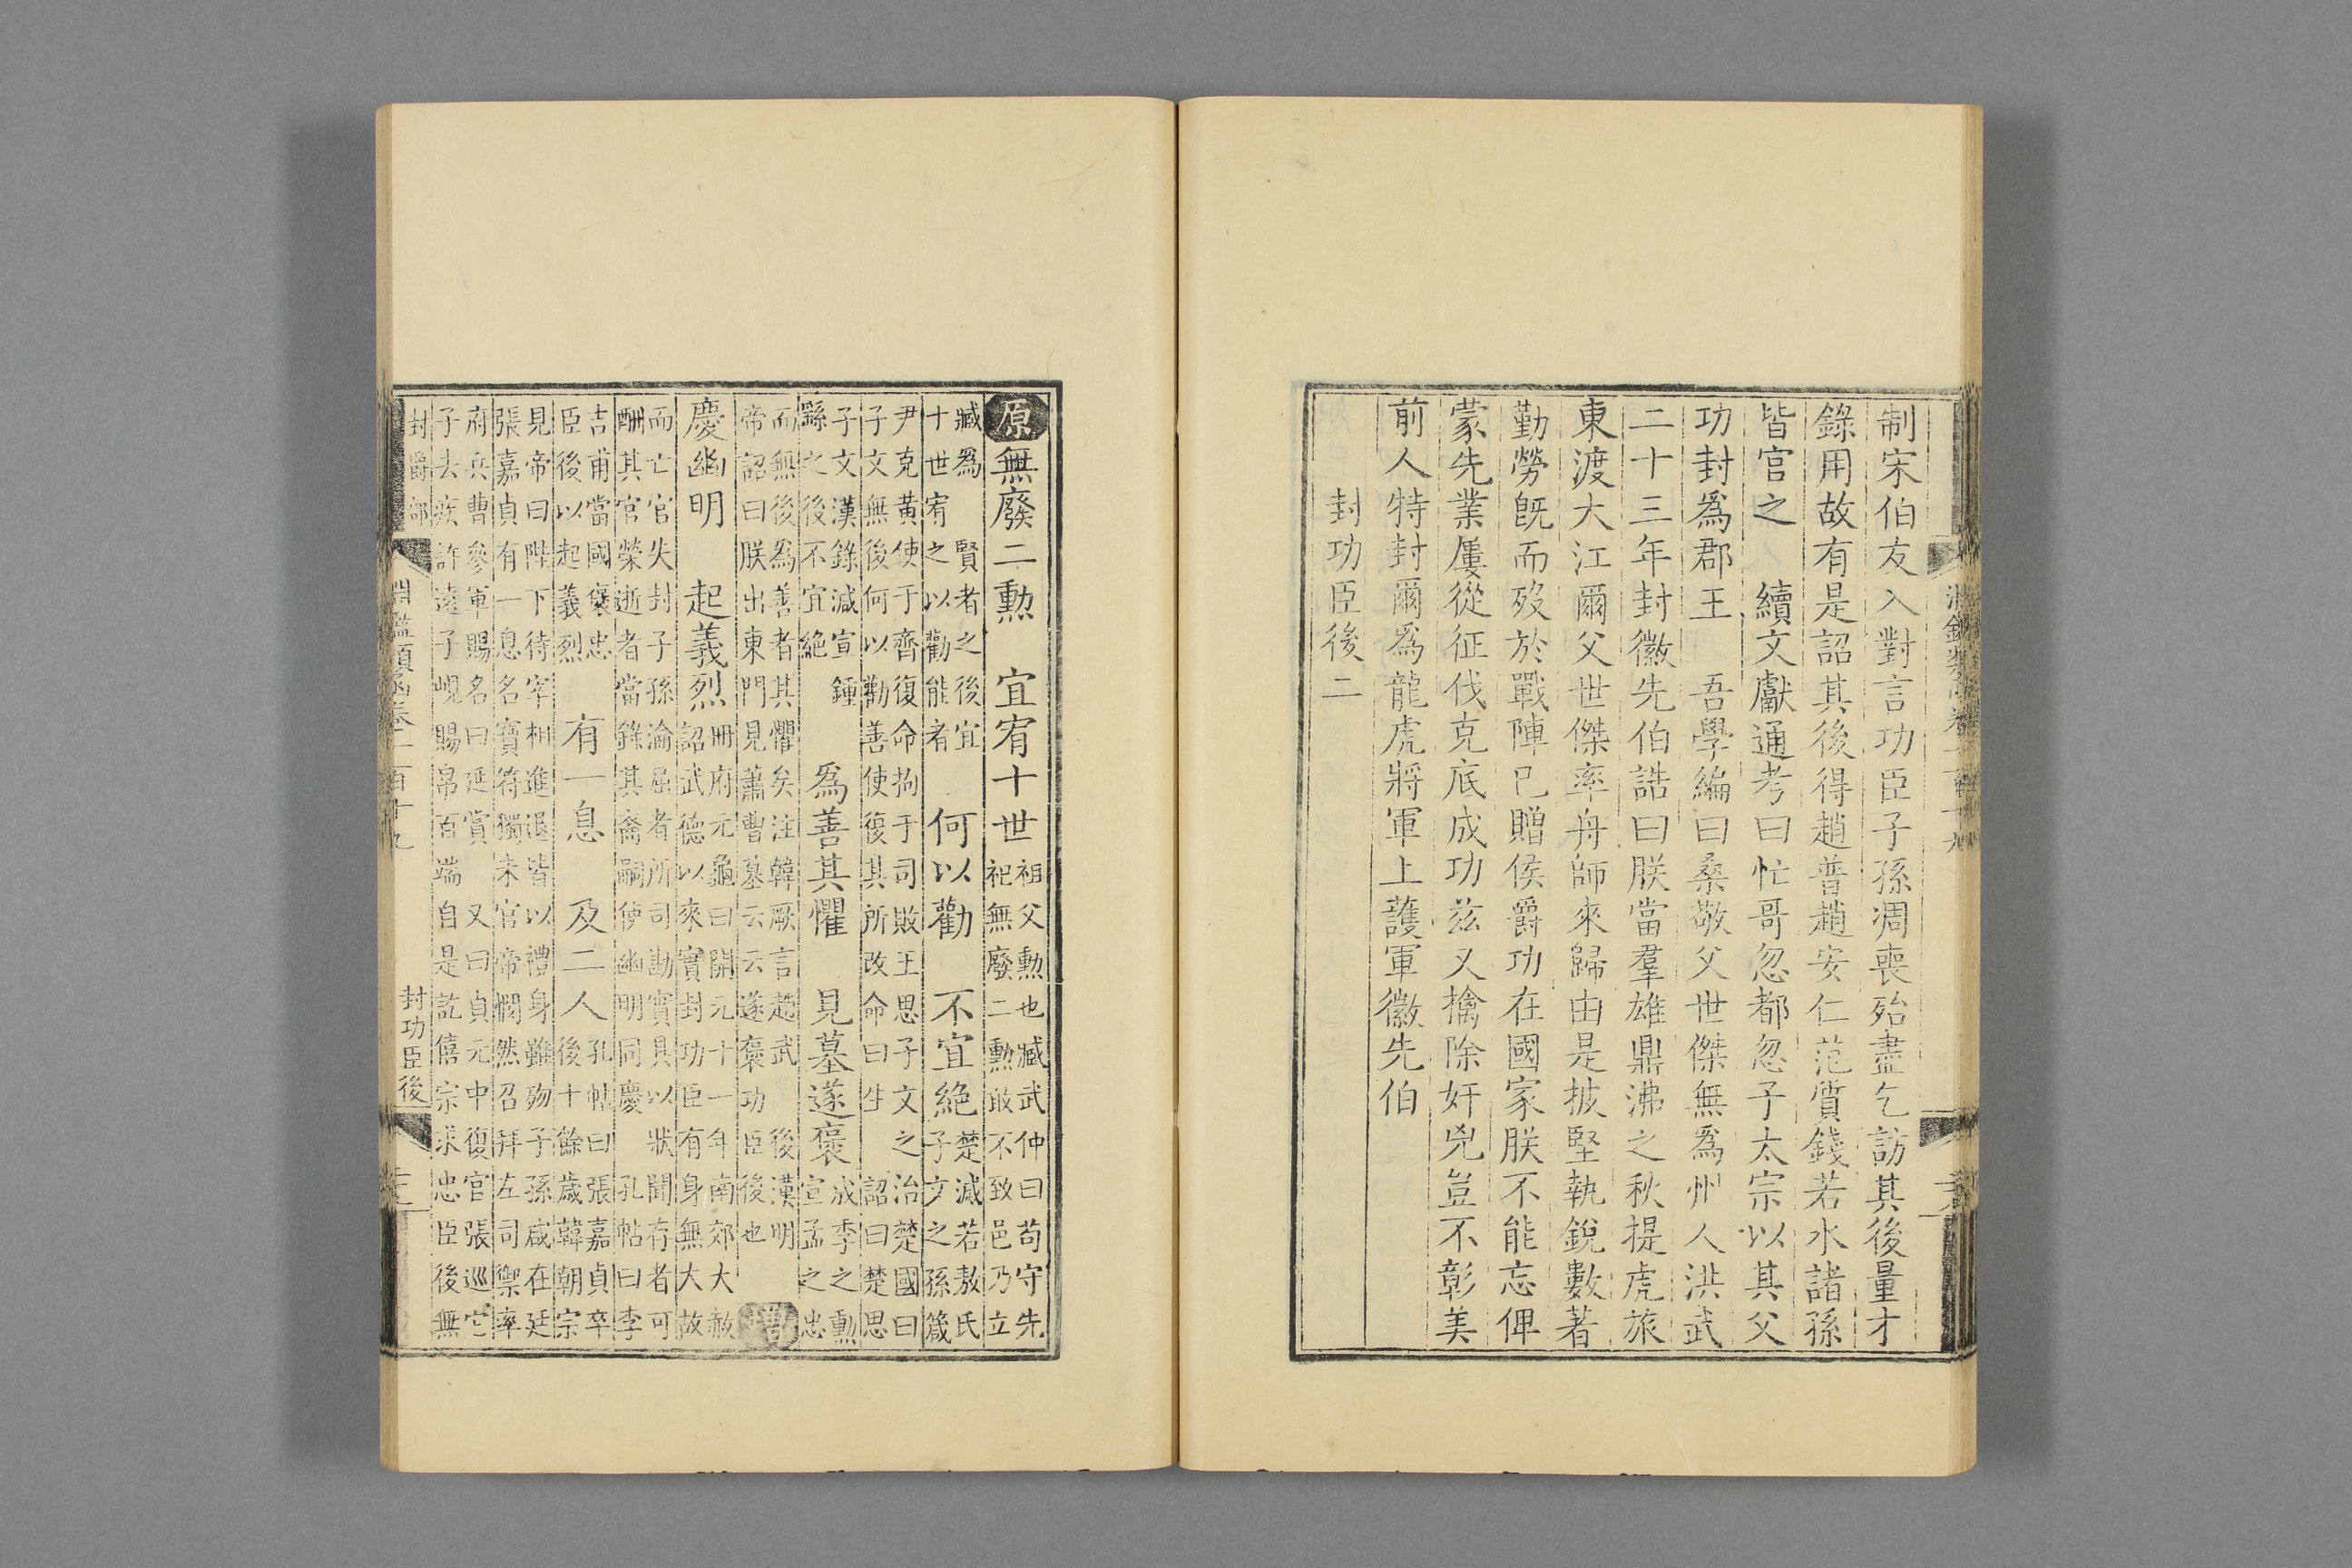 制宋伯友入對言功臣子孫凋喪殆盡乞訪其後量才
錄用故有是詔其後得趙普趙安仁范質錢若水諸孫
皆官之　續文獻通考曰忙哥忽都忽子太宗以其父
功封爲郡王　吾學編曰桑敬父世傑無爲州人洪武
二十三年封徽先伯誥曰朕當羣雄鼎沸之秋提虎旅
東渡大江爾父世傑率舟師來歸由是披堅執銳數著
勤勞旣而歿於戰陣已贈侯爵功在國家朕不能忘俾
蒙先業屢從征伐克底成功茲又擒除奸兇豈不彰美
前人特封爾爲龍虎將軍上護軍徽先伯
封功臣後二
原無廢二勲　宜宥十世
祖父勲也臧武仲曰苟守先
祀無廢二勲敢不致邑乃立
臧爲　賢者之後宜
十世宥之以勸能者
何以勸　不宜絕
楚滅若敖氏
子文之孫箴
尹克黃使于齊復命拘于司敗王思子文之治楚國曰
子文無後何以勸善使復其所改命曰生　詔曰楚思
子文漢錄滅宣鍾
繇之後不宜絕
爲善其懼　見墓遂褒
成季之勲
宣孟之忠
而無後爲善者其懼矣注韓厥言趙武　後漢明
帝詔曰朕出東門見蕭曹墓云云遂褒功臣後也
慶幽明　起義烈
冊府元龜曰開元十一年南郊大赦
詔武德以來實封功臣有身無大故
而亡官失封子孫淪屈者所司勘實具以狀聞存者可
酬其官榮逝者當錄其裔嗣使幽明同慶　孔帖曰李
吉甫當國褒忠
臣後以起義烈
有一息　及二人後
孔帖曰張嘉貞卒
十餘歲韓朝宗
見帝曰陛下待宰相進退皆以禮身雖歿子孫咸在廷
張嘉貞有一息名寶符獨未官帝憫然召拜左司禦率
府兵曹參軍賜名曰延賞　又曰貞元中復官張巡它
子去疾許遠子峴賜帛百端自是訖僖宗求忠臣後無
封功臣後